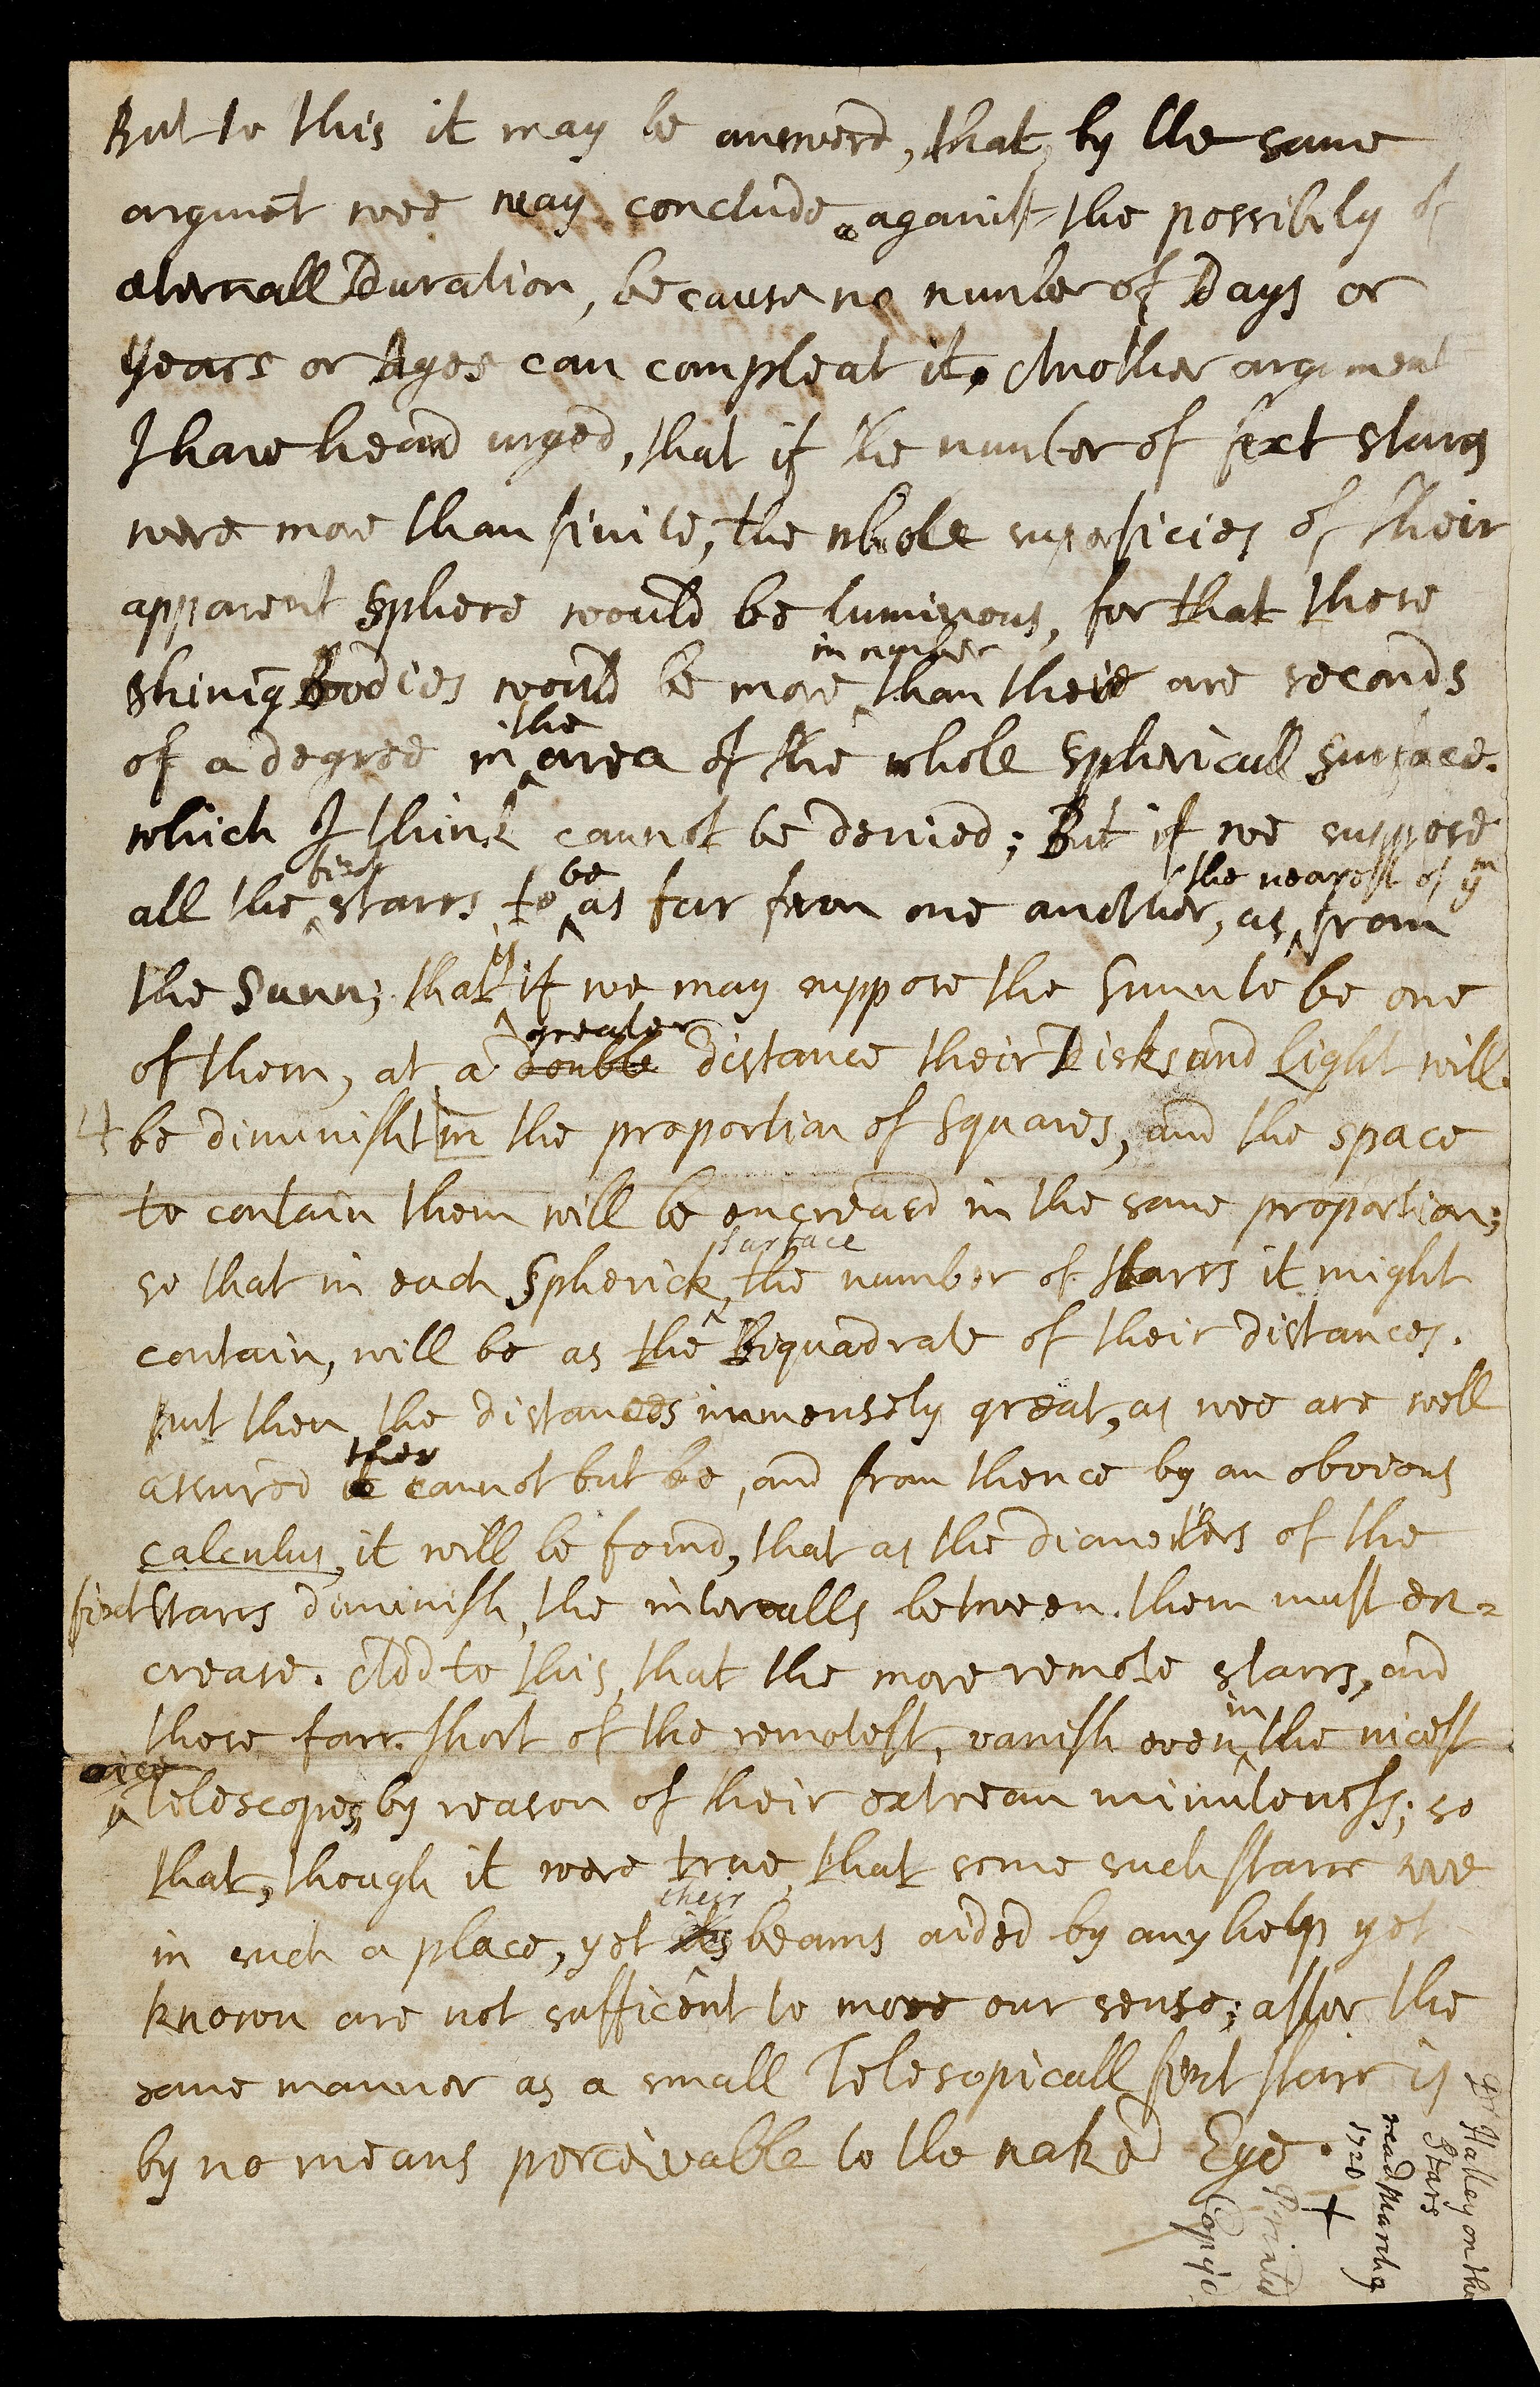 But to this it may be answerd, that, by the same
argumet wee may conclude against the possibily of
æternall Duration, because no number of Days or
Years or Ages can compleat it. Another argument
I have heard urged, that if the number of fixt starrs
were more than finite, the whole superficies of their
apparent Sphere would be luminous, for that those
in number
shining Bodies would be more than there are seconds
the
of a degree in area of the whole Sphericall Surface.
which I think cannot be denied; But if we suppose
fixt be the nearest of ym
all the starrs to as far from one another, as from
is
the Sunn; that if we may suppose the Sunn to be one
greater
of them, at a double distance their Disks and Light will
be diminisht in the proportion of Squares, and the space
to contain them will be encreasd in the same proportion;
surface
so that in each Spherick the number of Starrs it might
contain, will be as the Biquadrate of their distances.
put then the distances immensely great, as wee are well
they
assured cannot but be, and from thence by an obvious
calculus, it will be found, that as the diameters of the
fixt Starrs diminish, the intervalls between them must en=
crease. Add to this, that the more remote starrs, and
in
those farr short of the remotest, vanish even the nicest
nice
Telescopes, by reason of their extream minuteness; so
that, though it were true, that some such starre were
their
in such a place, yet its beams aided by any help yet
known are not sufficent to move our sense; after the
same manner as a small Telesopicall fixt starr is
by no means perceivable to the naked Eye.
Dr Halley on the
Stars
read March 9
1720
+
Printed
Copyd